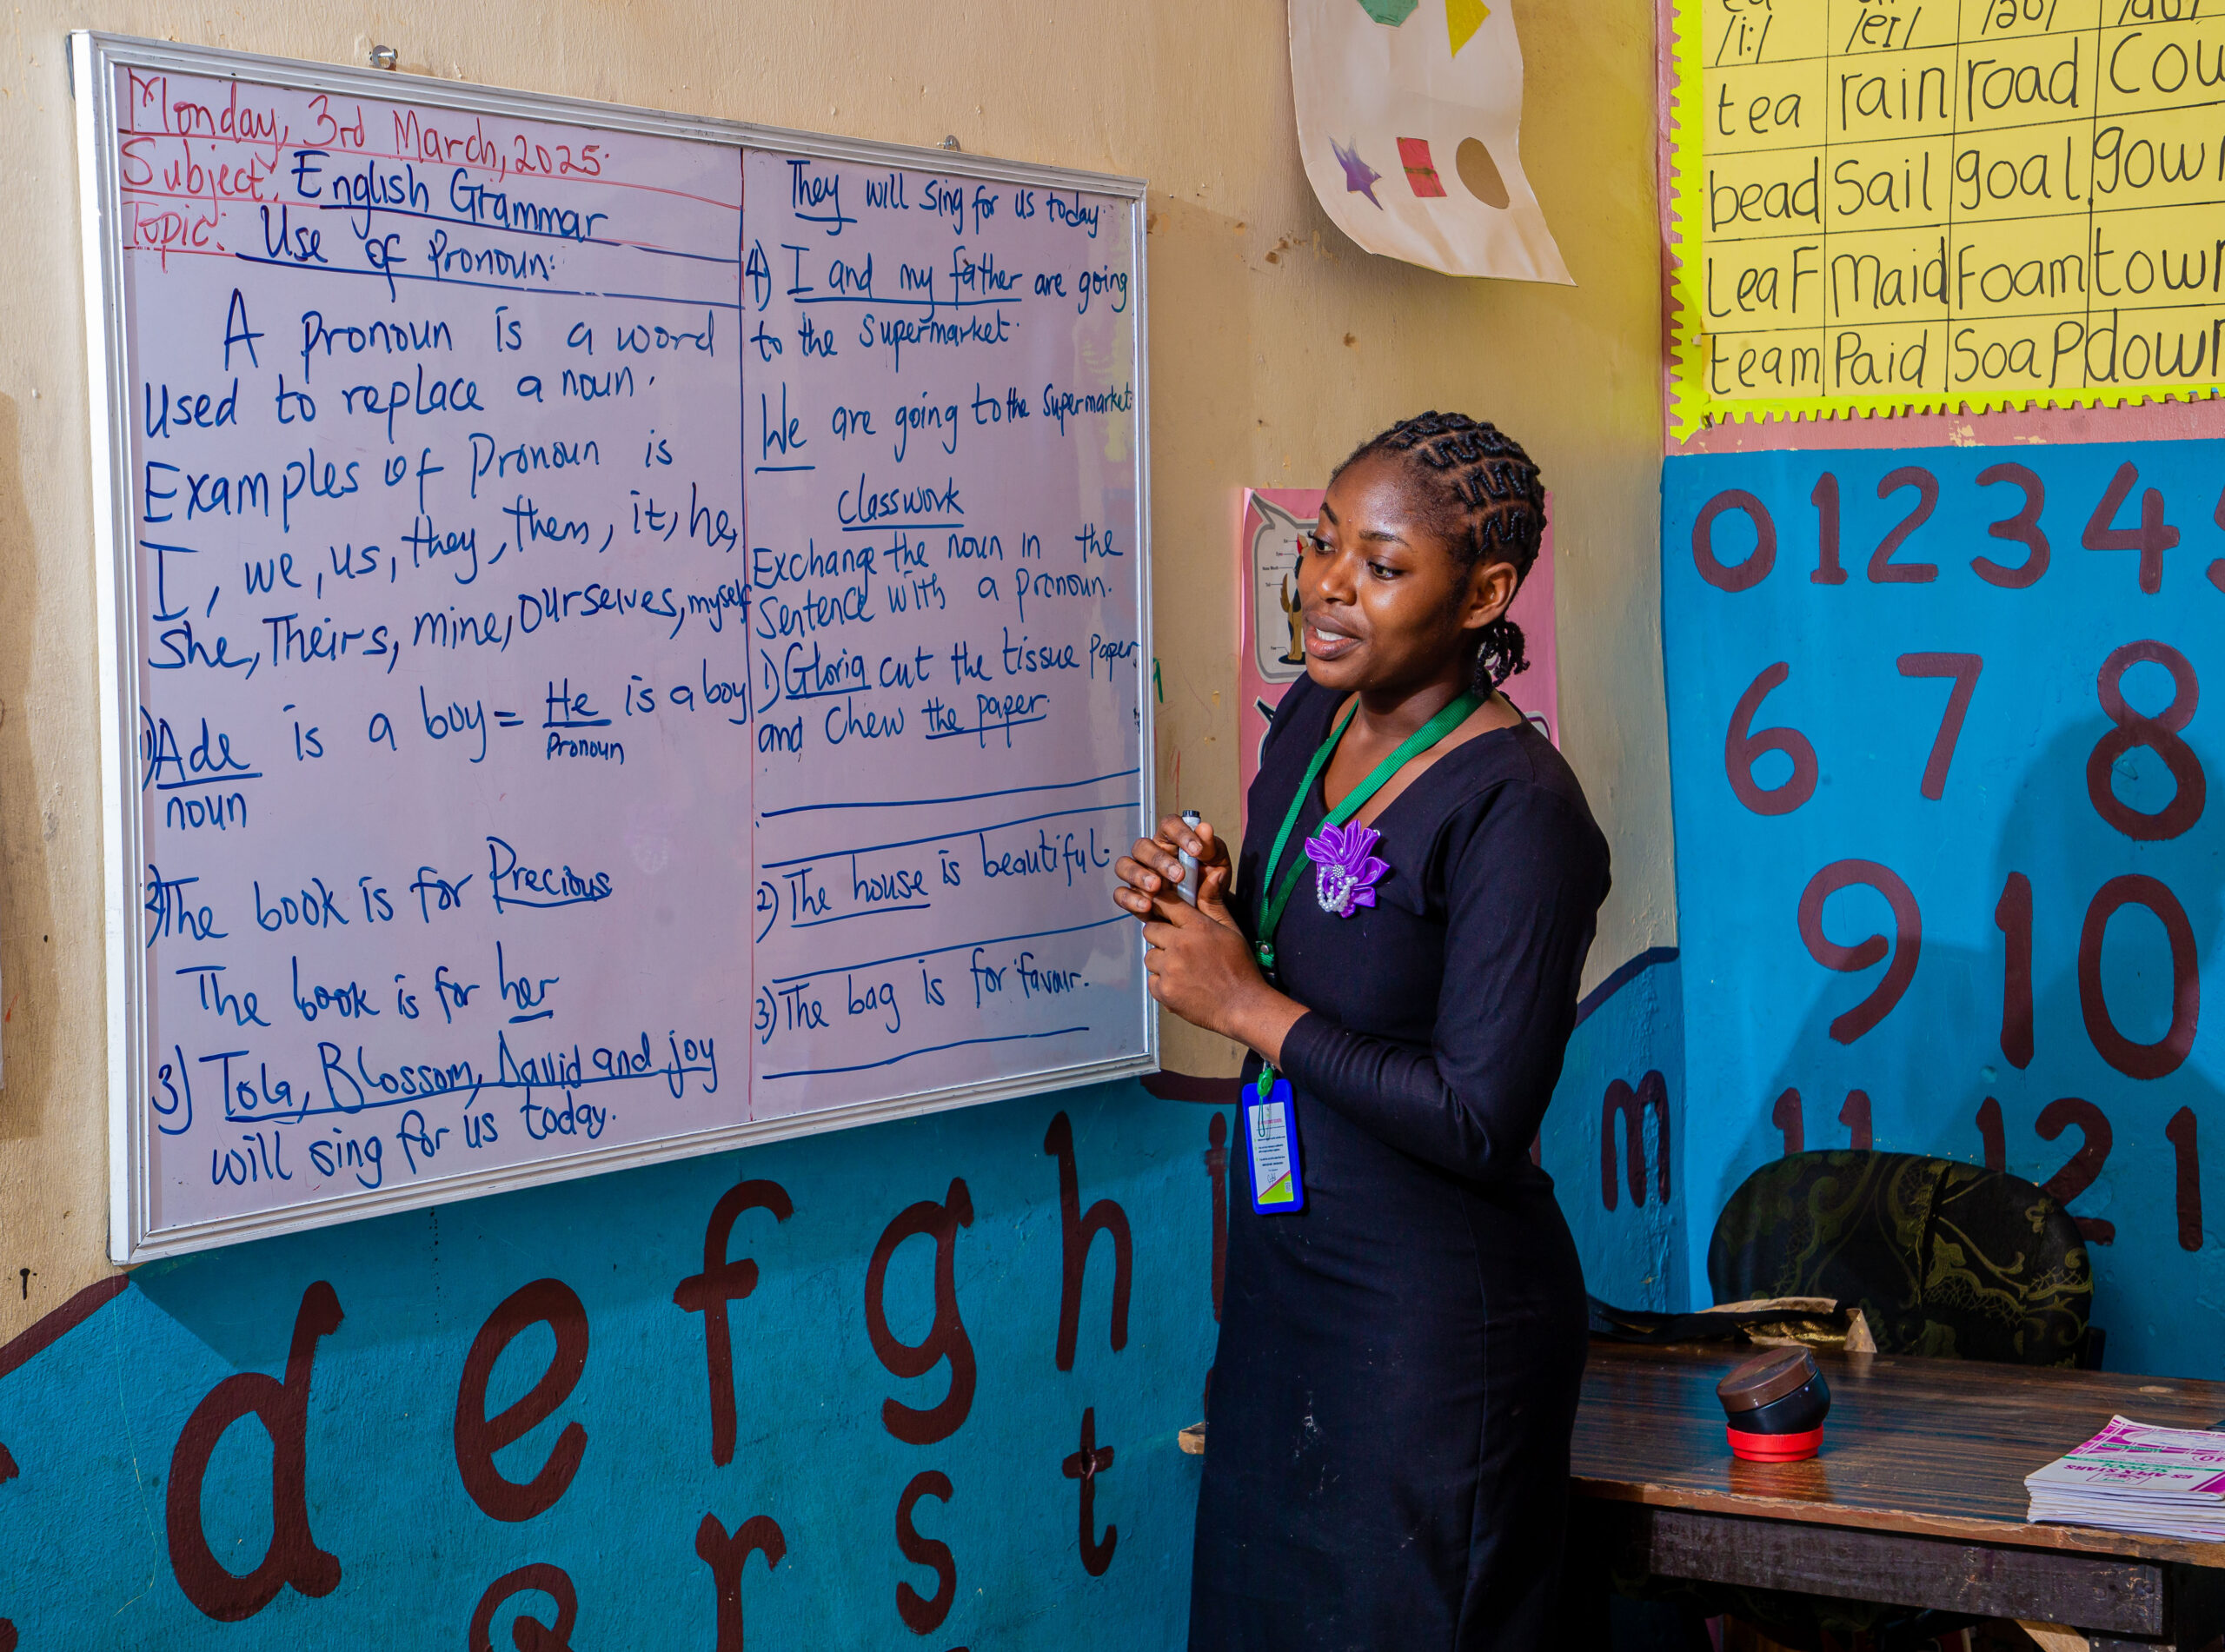 Monday, 3rd March, 2025.
Subject: English Grammar
Topic: Use of Pronoun:
A pronoun is a word
used to replace a noun.
Examples of Pronoun is
I, we, us, they, them, it, he,
she, Theirs, mine, ourselves, myself
1) Ade is a boy = He is a boy
noun
Pronoun
2) The book is for Precious
The book is for her
3) Tola, Blossom, David and joy
will sing for us today.
They will sing for us today.
4) I and my father are going
to the Supermarket.
We are going to the Supermarket.
classwork
Exchange the noun in the
Sentence with a pronoun.
1) Gloria cut the tissue paper
and Chew the paper.
2) The house is beautiful.
3) The bag is for favour.
/i:/ /eI/
tea rain road Cou
bead Sail goal gown
Leaf Maid Foam town
team Paid Soap down
0 1 2 3 4 5
6 7 8
9 10
11 12 1
d e f g h i m
r s t